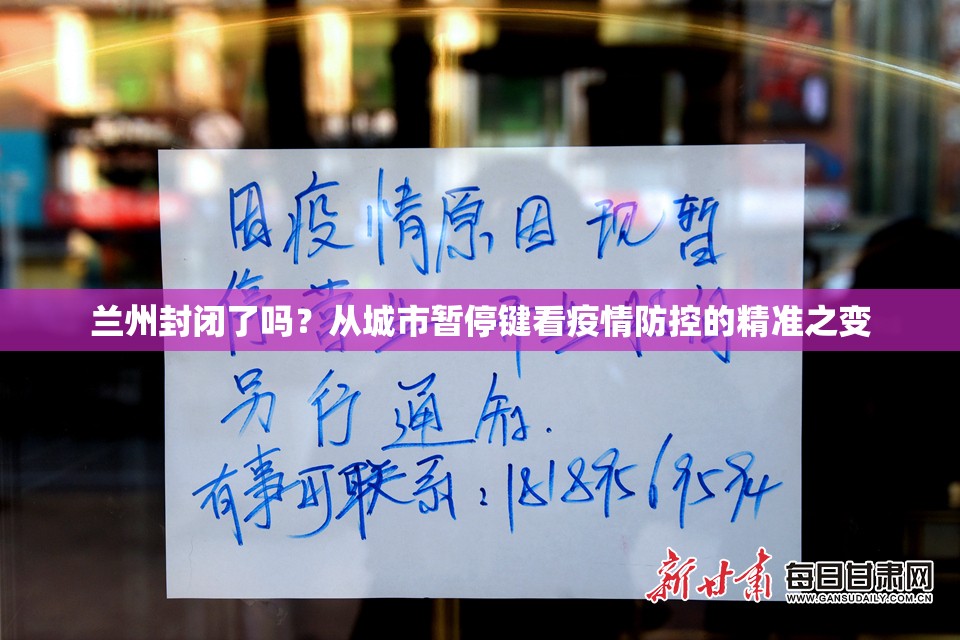 因疫情原因现暂
停营业
兰州封闭了吗？从城市暂停键看疫情防控的精准之变
另行通知.
有事可联系：18189569594
新甘肃 每日甘肃网
WWW.GANSUDAILY.COM.CN